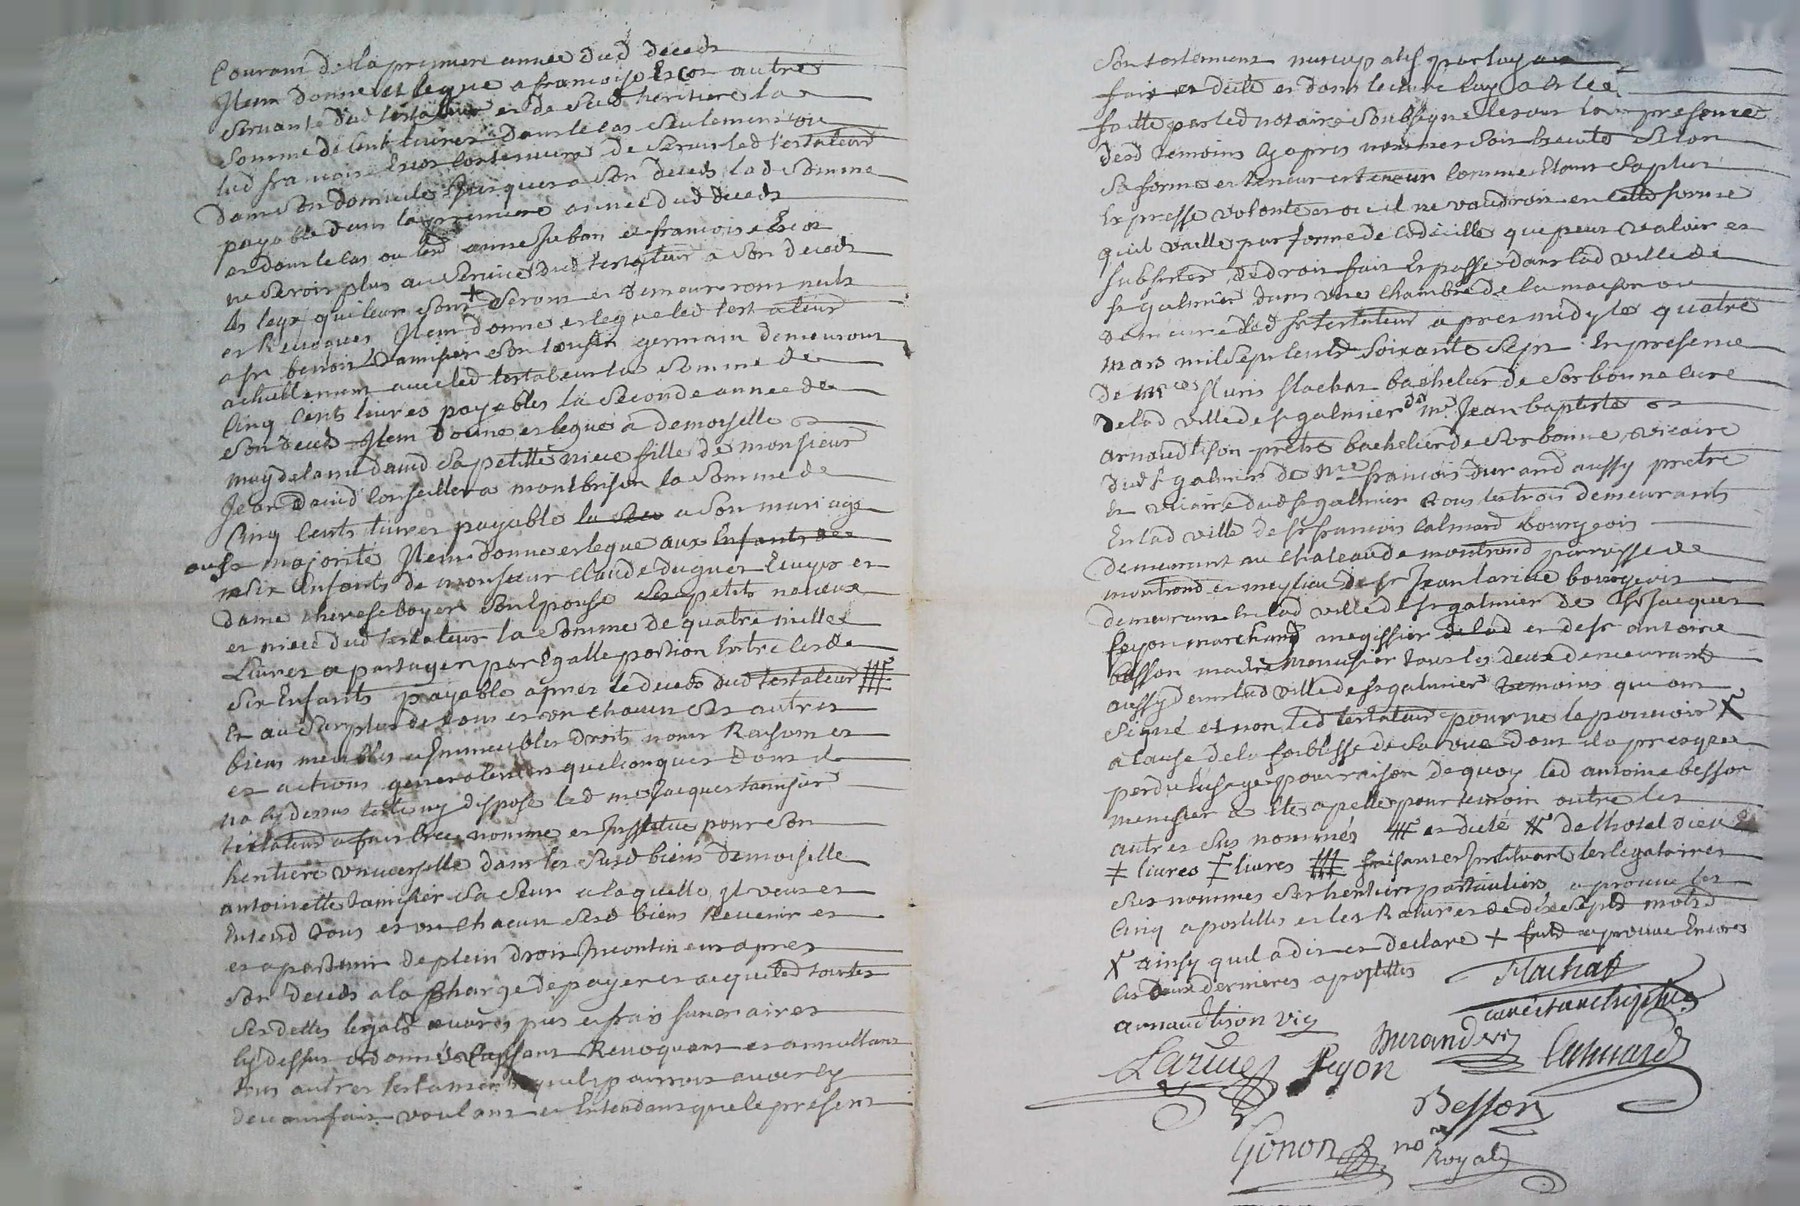 Courant de la premiere année dud deceds
Item donne et legue a francoise Escot autre
servante dud testateur et de sad heritiere la
somme de cent livres dans le cas seulement ou
lad francoise Escot continuera de servir led testateur
dans son domicile jusques a son deceds lad somme
payable dans la premiere année dud deceds
et dans le cas ou led anne Juban et francoise Escot
ne seroit plus au service dud testateur a son deceds
les legs qui leur sont + seront et demeureront nuls
et Revoqués Item donne et legue led testateur
a sr benoit tamisier son cousin germain demeurant
actuellement avec led testateur la somme de
Cinq Cents livres payables la seconde année de
son deceds Item donne et legue a demoiselle
magdelaine david sa petitte niece fille de monsieur
Jean David Conseiller a montbrison la somme de
Cinq Cents livres payable la sa a son mariage
ou sa majorité Item donne et legue aux Enfants de
six Enfants de monsieur Claude duguet Ecuyer et
dame therese boyer son Epouse ses petits neveux
et niece dud testateur la somme de quatre mille
Livres a partager par Egalle portion Entre lesd
six Enfants payable apres le deceds dud testateur #
Et au surplus de tous et un chacun ses autres
biens meubles et Immeubles droits noms Raisons et
et actions generalement quelconques dont il
na cy dessus testé ny disposé led mre Jacques tamisier
testateur a fait Créé nommé et Institué pour son
heritiere universelle dans les susd biens demoiselle
antoinette tamisier sa seur a laquelle il veut et
Entend tous et un chacun sesd biens Revenir et
et apartenir de plein droit Incontinent apres
son deceds a la charge de payer et acquitter toutes
ses dettes legats œuvres pies et frais funeraires
Cy dessus ordonnés Cassant Revoquant et annullant
tous autres testaments quil pourroit avoir cy
devant fait voulant et Entendant que le présent
son testement nuncupatif par luy
fait et dicté et dont lecture luy a été
faitte par led notaire soubsigné le tout en presence
desd temoins cy apres nommés soit Executé selon
sa forme et teneur comme Etant sa plus
Expresse volonté et ou il ne vaudroit en cette forme
quil vaille par forme de Codicille que peut valoir et
subsister de droit fait Et passé dans lad ville de
st galmier dans une chambre de la maison ou
demeure led sr testateur apres midy le quatre
mars mil sept cents soixante sept En presence
de mre Flachat bachelier de sorbonne Curé
de lad ville de st galmier de mre Jean baptiste
arnaud tison pretre bachelier de sorbonne vicaire
dud st galmier de mre francois durand aussy pretre
et vicaire dud st galmier tous les trois demeurants
En lad ville de sr francois Calmard bourgeois
demeurant au chateau de montrond parroisse de
montrond et meylieu de sr Jean larive bourgeois
demeurant En lad ville de st galmier de sr Jacques
feyon marchand megissier de lad et de sr antoine
besson maitre menusier tous les deux demeurant
aussy dans lad ville de st galmier temoins qui ont
signé et non led testateur pour ne le pouvoir X
a cause de la foiblesse de sa vue dont il a presque
perdu lusage pour raison de quoy led antoine besson
menusier a été apellé pour temoin outre les
autres sus nommés # et dicté # de lhotel dieu
+ livres ‡ livres # faisant et Instituant les legataires
sus nommés ses heritiers particuliers aprouvé les
Cinq apostilles et les Ratures de dix sept mots
X ainsy quil a dit et declaré + aprouvé Encores
les deux dernieres apostilles
Flachat
curé
arnaud tison vic
Durand vic
Larive
feyon
Calmard
Besson
Gonon
nore
Royal